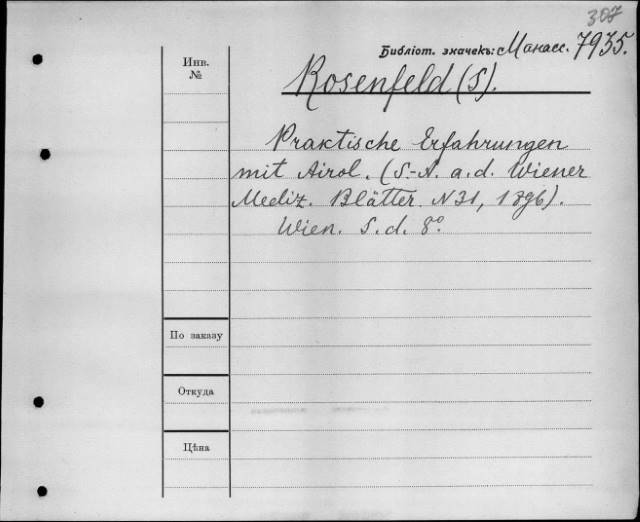 307
Библіот. значекъ: Манасс. 7935.
Инв.
№
Rosenfeld (S).
Praktische Erfahrungen
mit Airol. (S.-A. a. d. Wiener
Mediz. Blätter N31, 1896).
Wien. S. d. 8º.
По заказу
Откуда
Цѣна